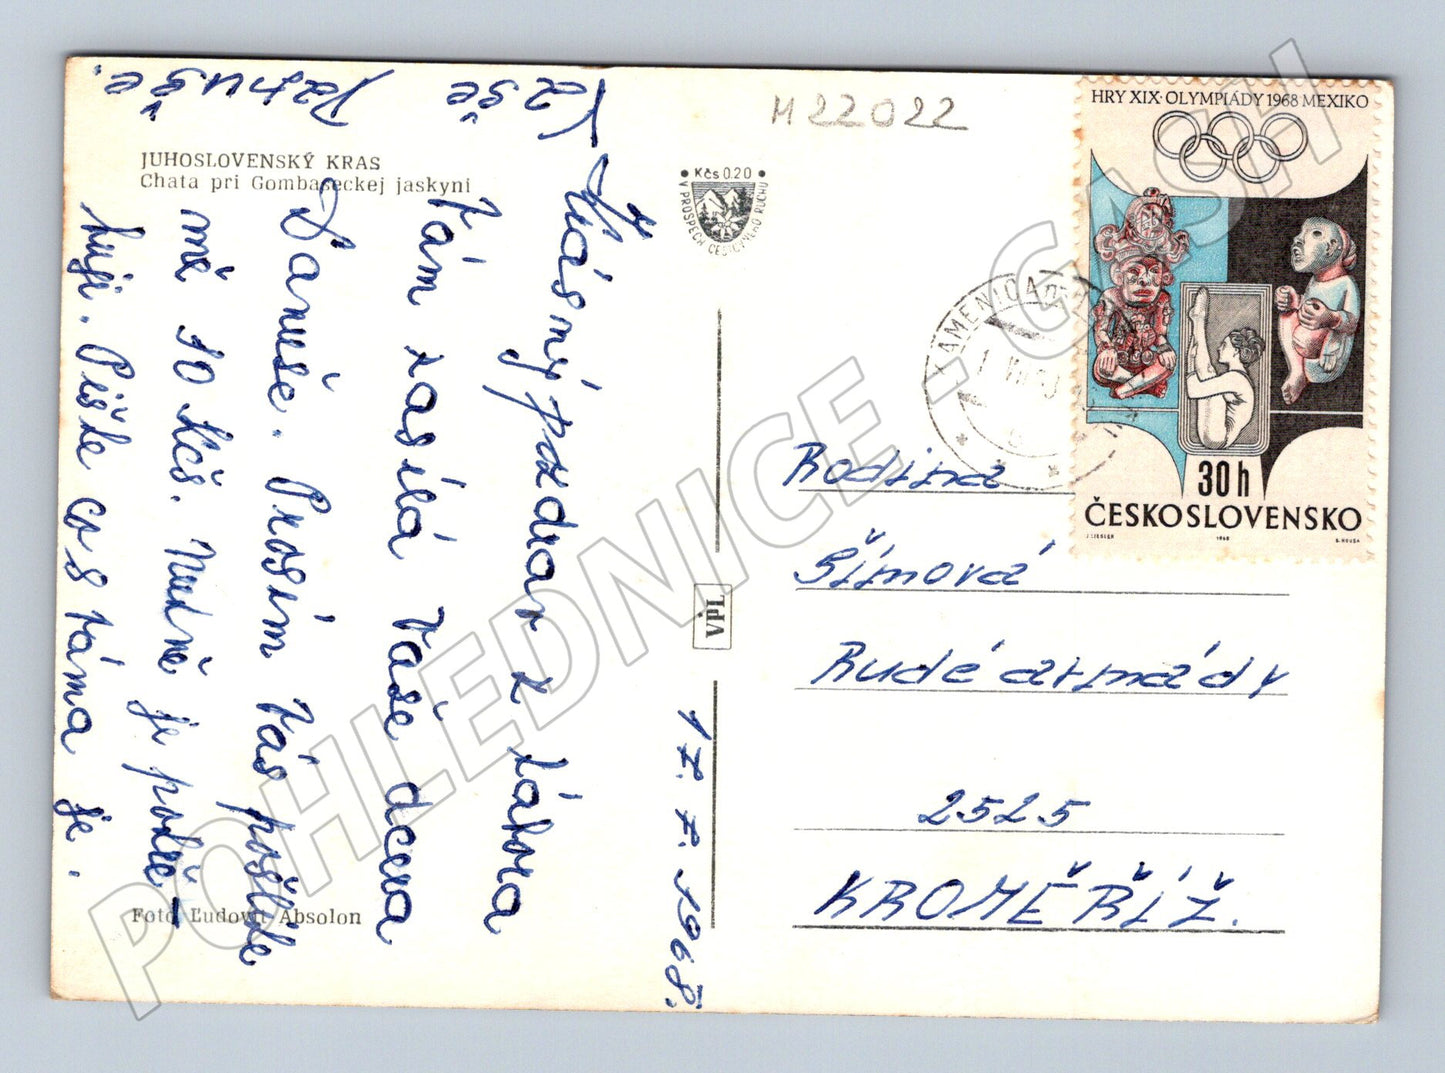 M22022
HRY XIX. OLYMPIÁDY 1968 MEXIKO
30h
ČESKOSLOVENSKO
J. LIESLER 1968
JUHOSLOVENSKÝ KRAS
Chata pri Gombaseckej jaskyni
Kčs 0.20
V PROSPECH CESTOVNÉHO RUCHU
KAMENICA
Krásný pozdrav z tábora
Vám zasílá Vaše dcera
Danuše. Prosím Vás pošlete
mě 10 Kčs. Nutně je potře-
buji. Pište co s táma je.
Vaše
Danuše.
17. 7. 1968.
VPL
Rodina
Šímová
Rudé armády
2525
KROMĚŘÍŽ.
Foto Ľudovít Absolon
POHLEDNICE - GASH